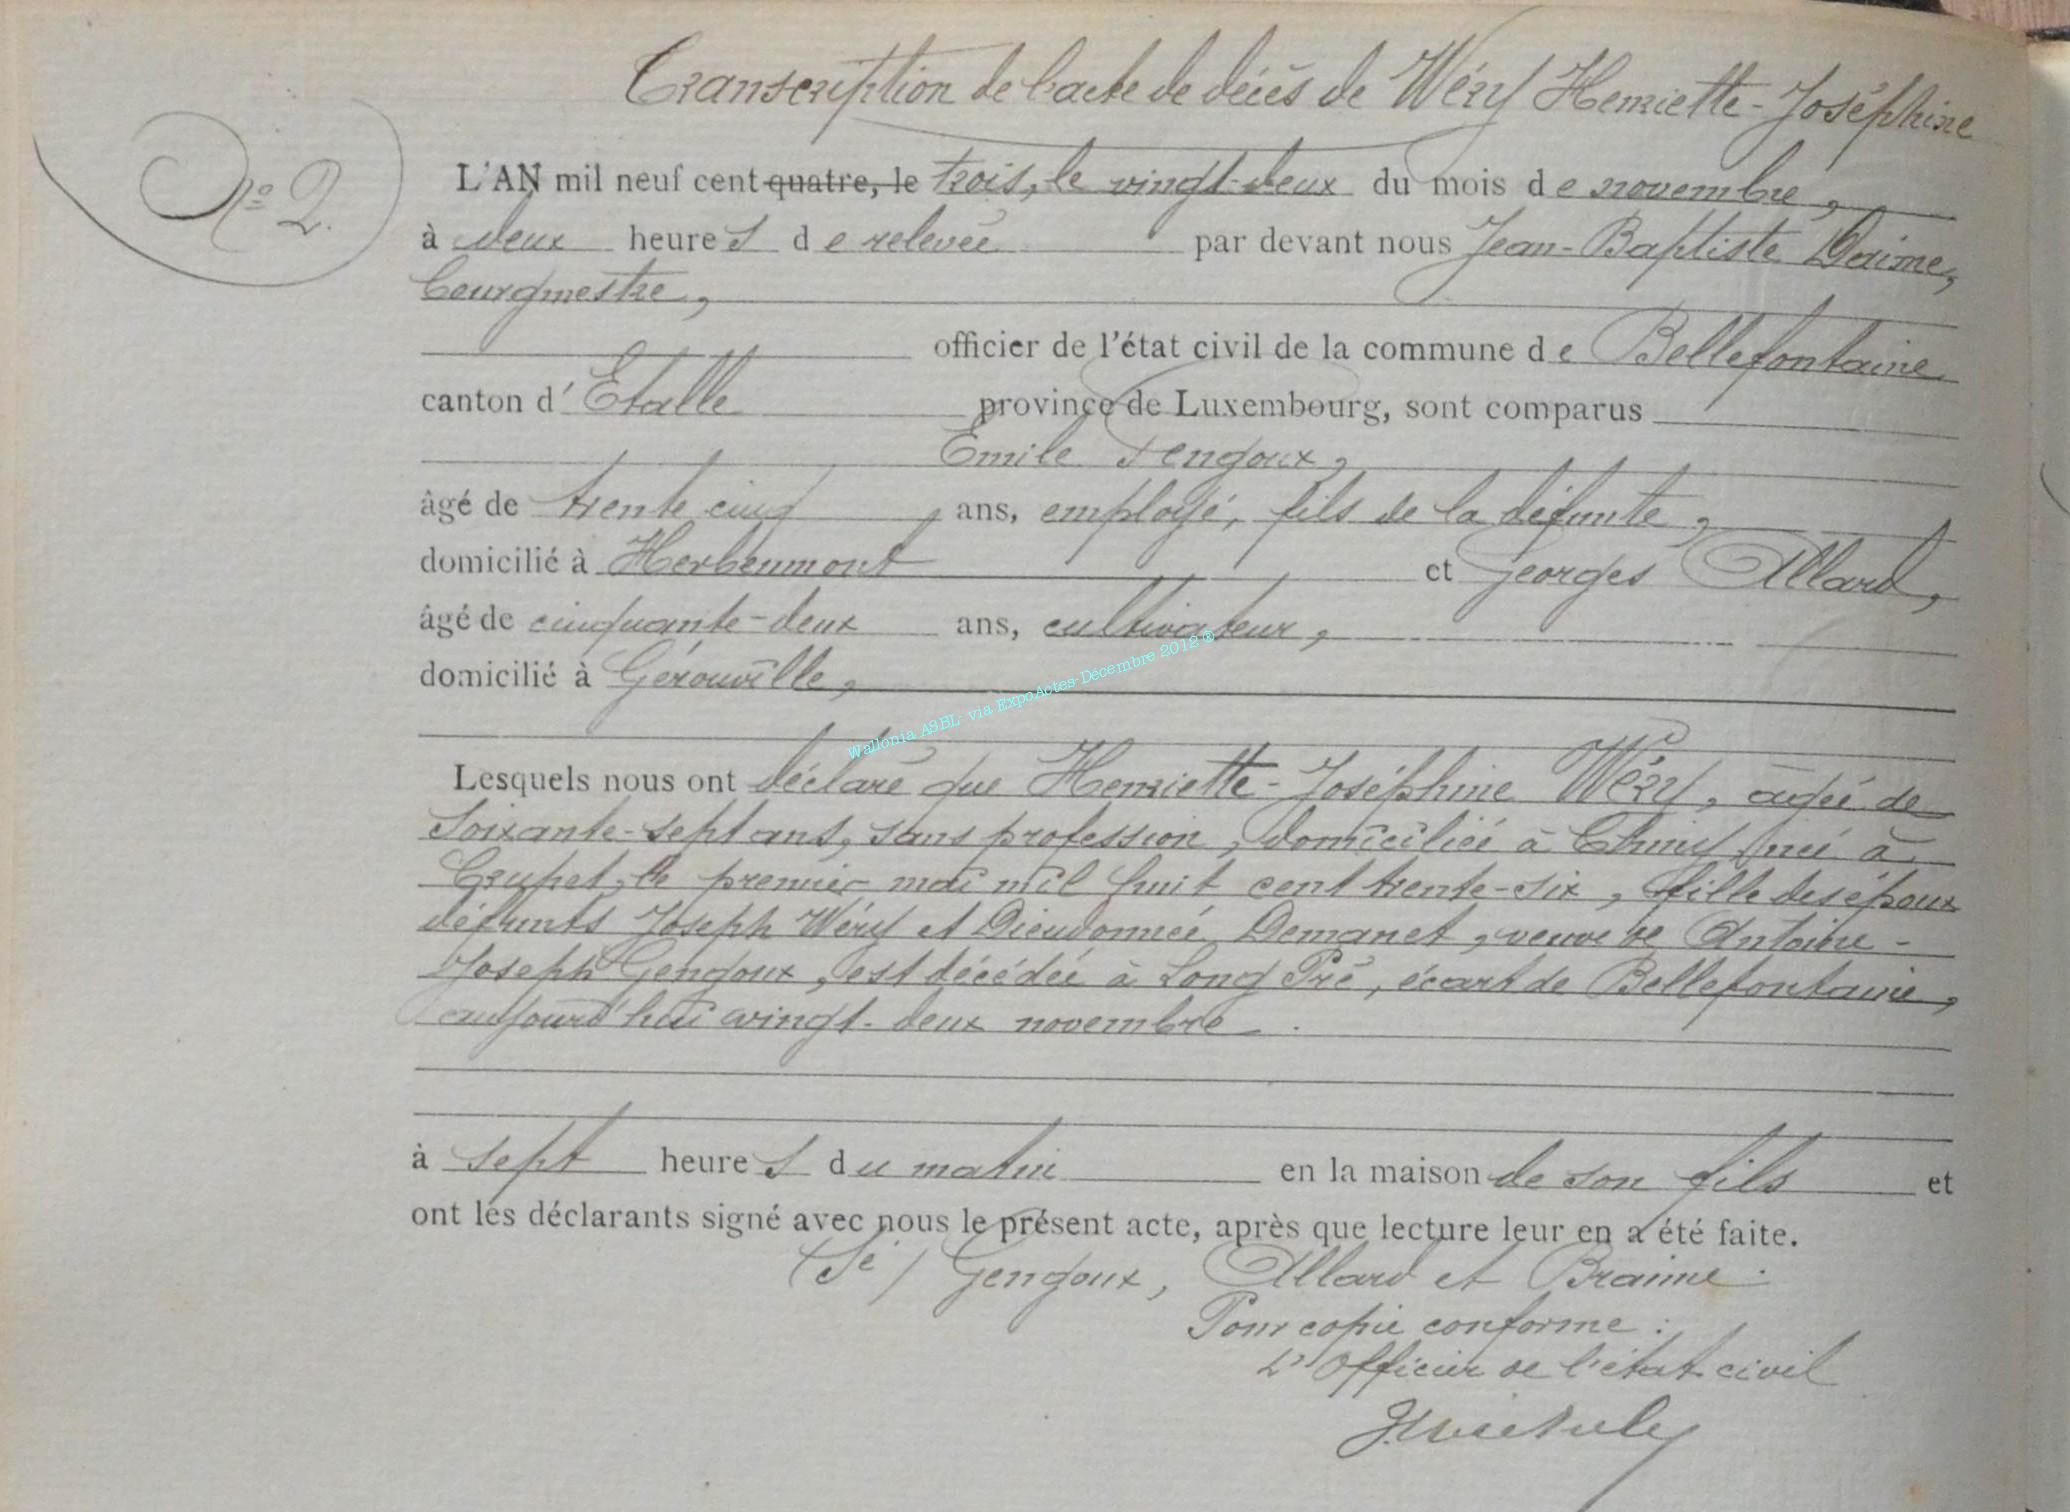 Transcription de l'acte de décès de Wéry Henriette-Joséphine
N° 2.
L'AN mil neuf cent quatre, le trois, le vingt-deux du mois de novembre,
à deux heures de relevée par devant nous Jean-Baptiste
bourgmestre,
officier de l'état civil de la commune de Bellefontaine
canton d'Etalle province de Luxembourg, sont comparus
Emile Gengoux,
âgé de trente cinq ans, employé, fils de la défunte,
domicilié à Herbeumont et Georges Allard,
âgé de cinquante-deux ans, cultivateur,
domicilié à Gérouville,
Wallonia ASBL- via ExpoActes-Décembre 2012 ®
Lesquels nous ont déclaré que Henriette-Joséphine Wéry, âgée de
soixante-sept ans, sans profession, domiciliée à Chiny, née à
Crupet, le premier mai mil huit cent trente-six, fille des époux
défunts Joseph Wéry et Dieudonnée Demanet, veuve de Antoine-
Joseph Gengoux, est décédée à Long Pré, écart de Bellefontaine,
aujourd'hui vingt-deux novembre.
à sept heures du matin en la maison de son fils et
ont les déclarants signé avec nous le présent acte, après que lecture leur en a été faite.
(Sé) Gengoux, Allard et Braime.
Pour copie conforme :
L'Officier de l'état civil